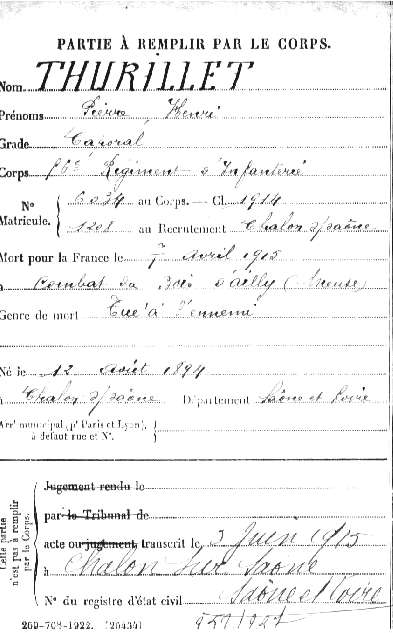 PARTIE À REMPLIR PAR LE CORPS.
Nom THURILLET
Prénoms Pierre, Henri
Grade Caporal
Corps Régiment d'Infanterie
N° Matricule. au Corps. — Cl. 1914
1201 au Recrutement Chalon s/saône
Mort pour la France le 7 avril 1915
à Combat du Bois d'ailly (Meuse)
Genre de mort Tué à l'ennemi
Né le 12 Août 1894
à Chalon s/saône Département Saône et Loire
Arr' municipal (p' Paris et Lyon),
à défaut rue et N°.
Cette partie
n'est pas à remplir
par le Corps.
Jugement rendu le
par le Tribunal de
acte ou jugement transcrit le 3 Juin 1915
à Chalon sur Saône
Saône et Loire
N° du registre d'état civil 957/1927
269-708-1922. (26434)